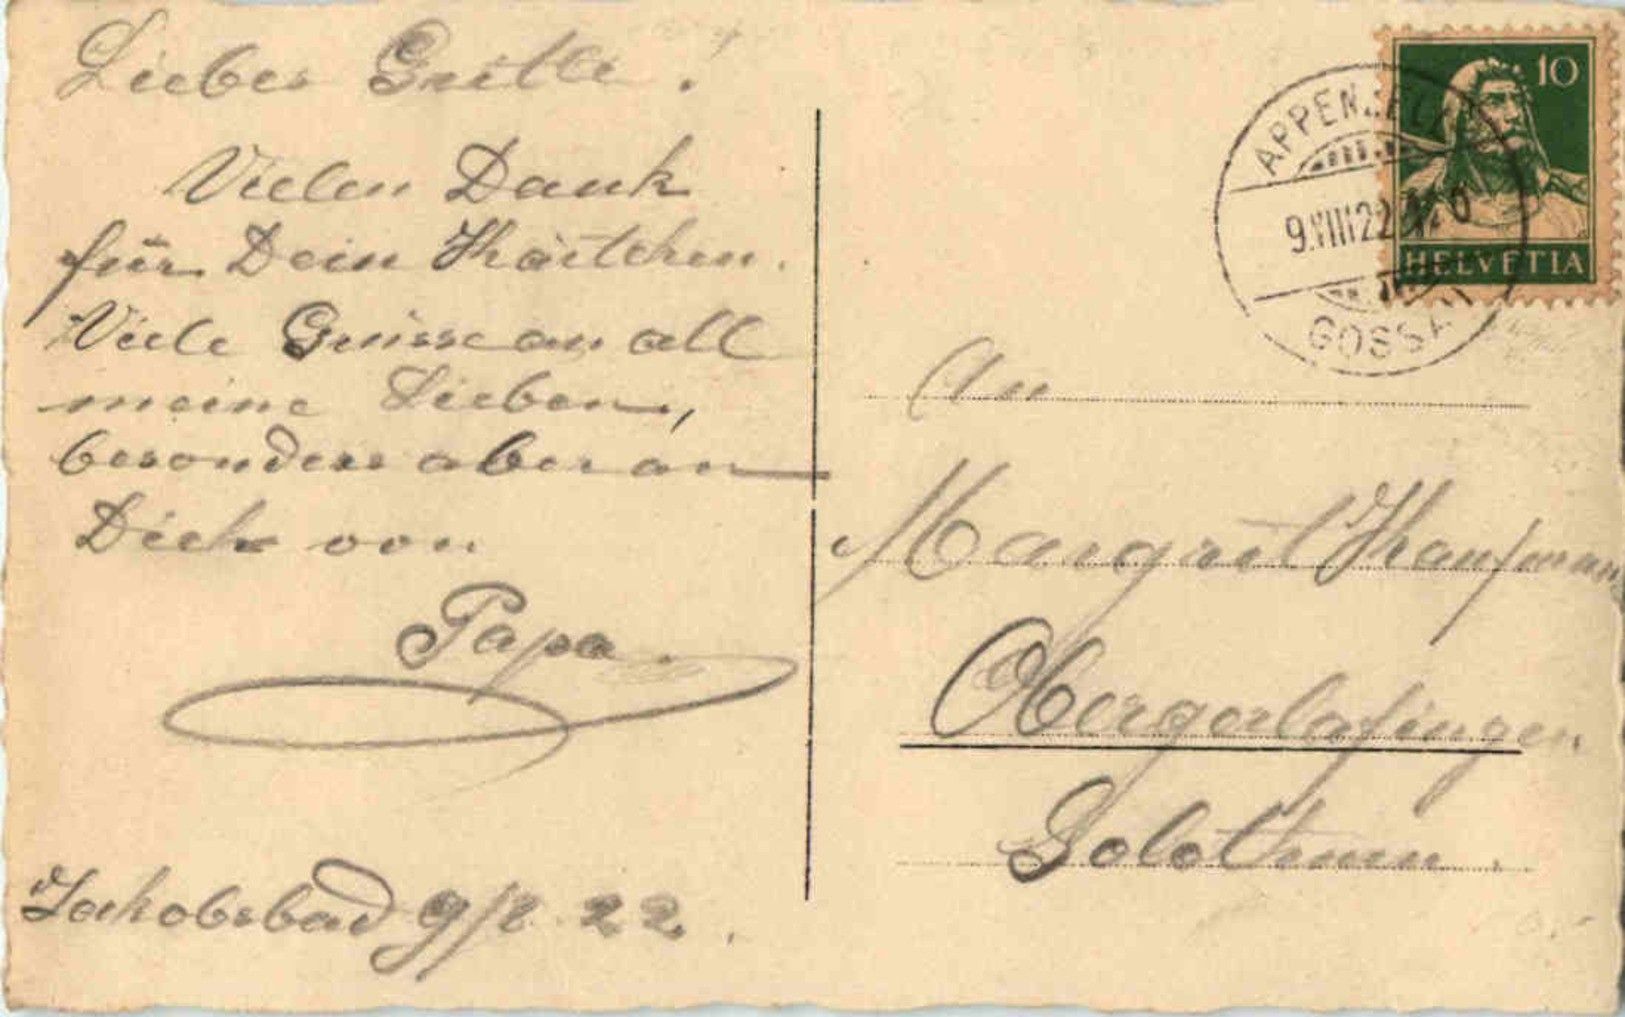 Liebes Gritli!
Vielen Dank
für Dein Kärtchen.
Viele Grüsse an all
meine Lieben,
besonders aber an
Dich von
Papa.
Jakobsbad 9/8. 22.
10
HELVETIA
APPENZELL
9.VIII 22
GOSSAU
An
Margrit Kaufmann
Obergerlafingen
Solothurn.